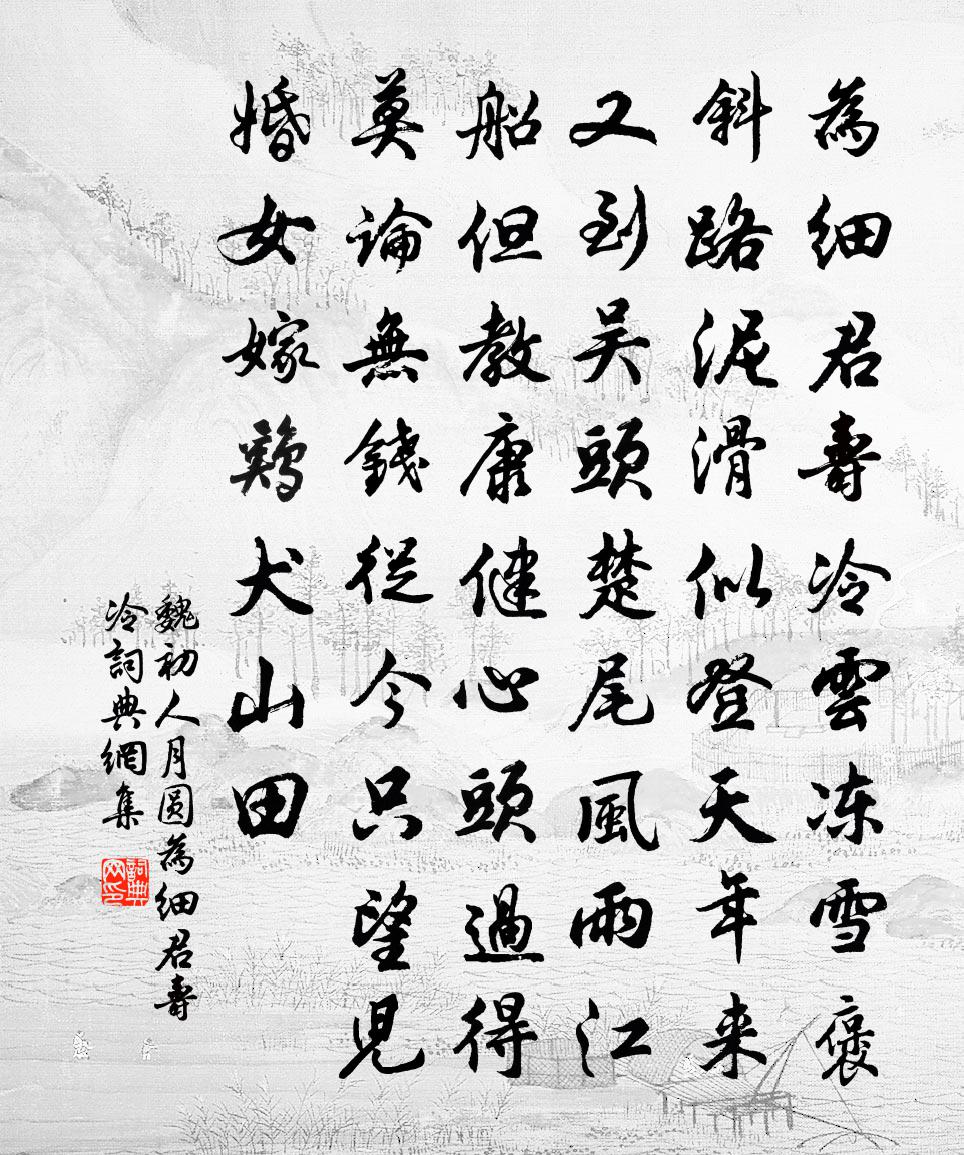 為細君壽冷雲凍雪褒
斜路泥滑似登天年来
又到吴頭楚尾風雨江
船但教康健心頭過得
莫論無錢從今只望兒
婚女嫁鷄犬山田
魏初人月圆為細君壽
冷詞典網集
詞典网印